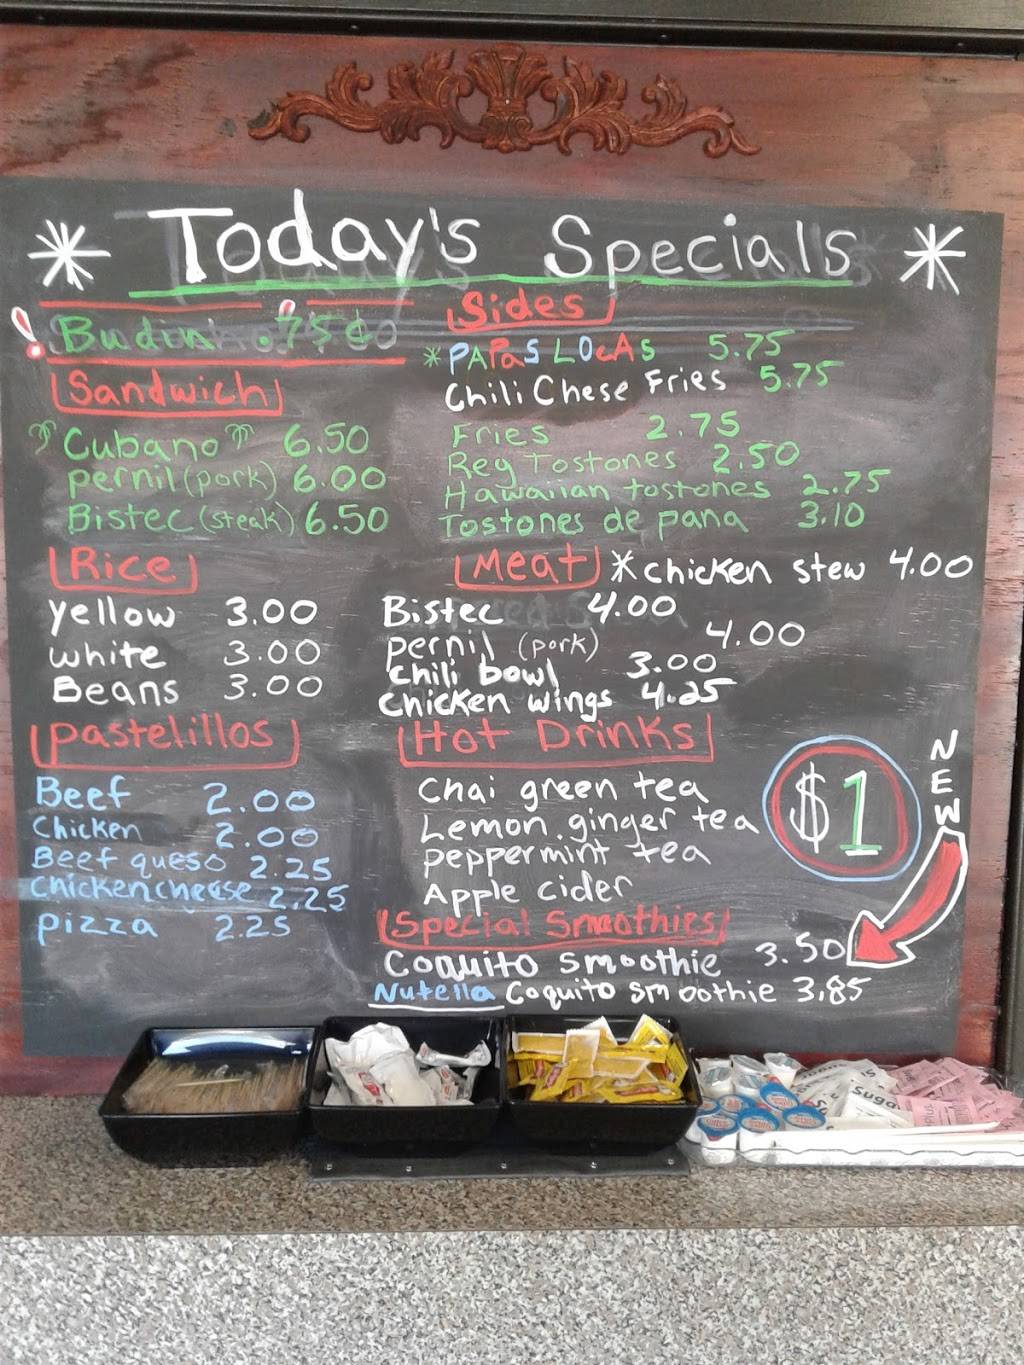 * Today's Specials *
! Budin .75¢ !
Sandwich
Cubano 6.50
pernil (pork) 6.00
Bistec (steak) 6.50
Rice
yellow 3.00
white 3.00
Beans 3.00
Pastelillos
Beef 2.00
Chicken 2.00
Beef queso 2.25
Chicken cheese 2.25
pizza 2.25
Sides
* PAPAS LOCAS 5.75
Chili Chese Fries 5.75
Fries 2.75
Reg Tostones 2.50
Hawaiian tostones 2.75
Tostones de pana 3.10
Meat * chicken stew 4.00
Bistec 4.00
pernil (pork) 4.00
chili bowl 3.00
chicken wings 4.25
Hot Drinks
Chai green tea
Lemon.ginger tea
peppermint tea
Apple cider
$1
NEW
Special Smoothies
Coquito smoothie 3.50
Nutella Coquito smoothie 3.85
Sugar